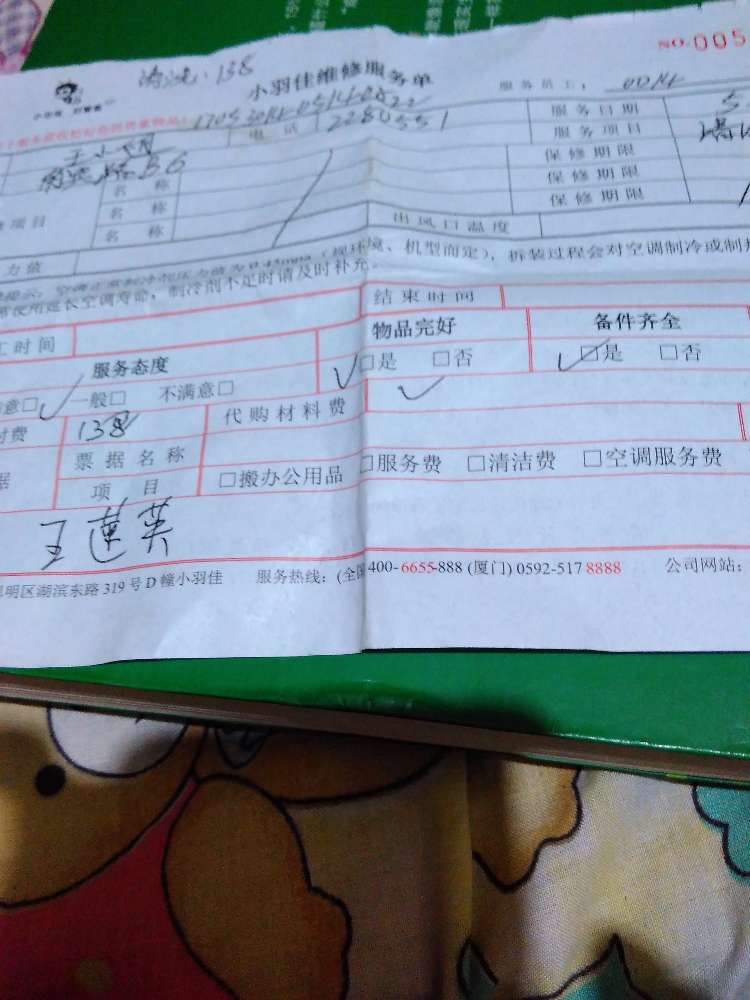 NO.005
清洗：138
小羽佳维修服务单
服务员工：
1705301405140022
电 话 2280551
服务日期 5
服务项目 清洗
王小姐
B6
名 称
名 称
名 称
项目
保修期限
保修期限
保修期限
出风口温度
力值
提示：空调正常制冷剂压力值为0.45mpa（视环境、机型而定），拆装过程会对空调制冷或制热
使用延长空调寿命，制冷剂不足时请及时补充。
工时间
结束时间
服务态度
物品完好
备件齐全
意□ 一般□ 不满意□
□是 □否
□是 □否
付费 138
代购材料费
据
票据名称
项 目
□搬办公用品 □服务费 □清洁费 □空调服务费
王莲英
思明区湖滨东路 319 号 D 幢小羽佳 服务热线：(全国 400-6655-888 (厦门) 0592-517 8888 公司网站：